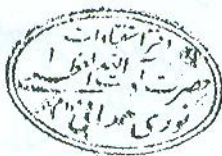 دفتر استفتاءات
حضرت آیت الله العظمی
نوری همدانی